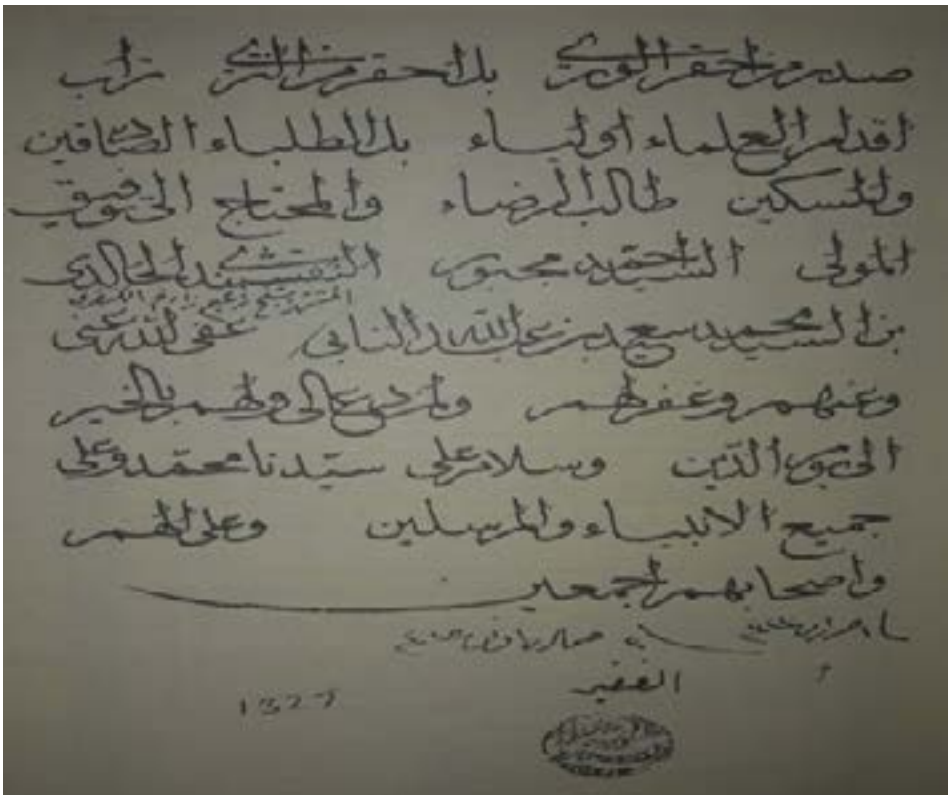 صدر من احقر الورى بل احقر من الثرى تراب
اقدام العلماء اولياء بل الطلباء الصادقين
والمسكين طالب الرضاء والمحتاج الى توفيق
المولى السيد احمد مجبور النقشبندى الخالدى
بن السيد محمد سعيد بن عبد الله النائبى عفى الله عنى
وعنهم وغفر لهم ولمن دعى لى ولهم بالخير
الى يوم الدين وسلام على سيدنا محمد وعلى
جميع الانبياء والمرسلين وعلى الهم
واصحابهم اجمعين
الفقير
1327